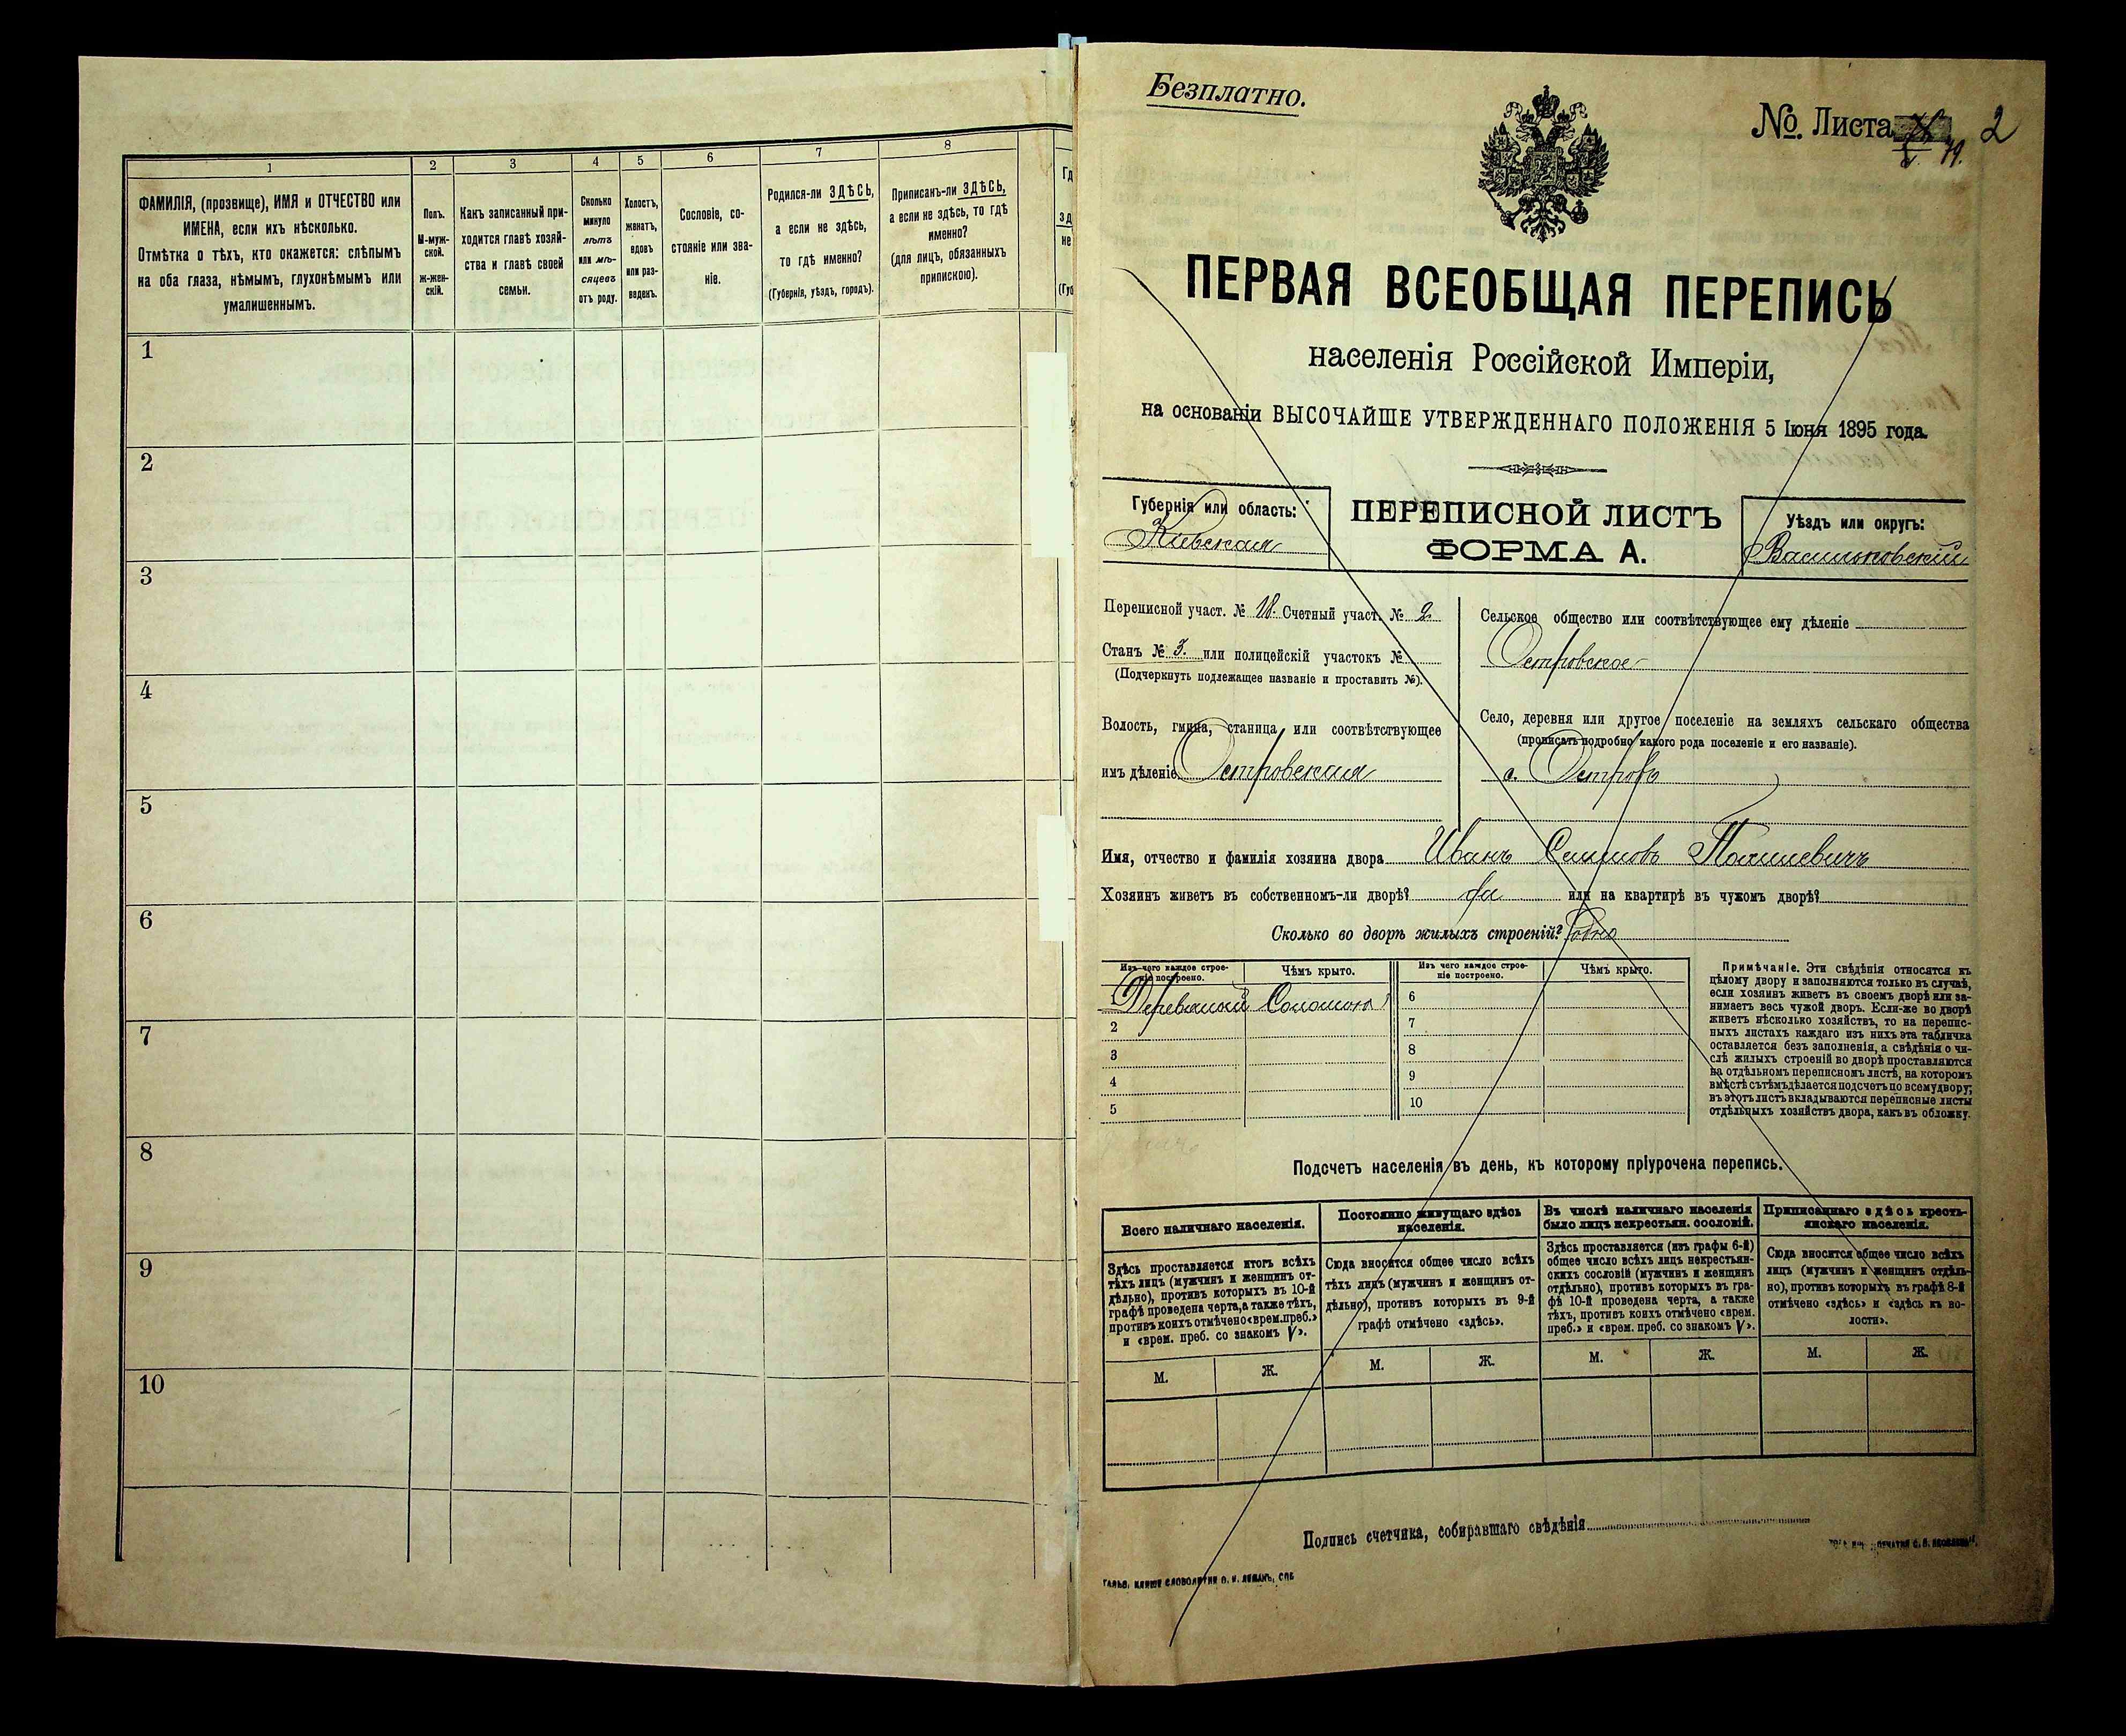 1
2
3
4
5
6
7
8
ФАМИЛІЯ, (прозвище), ИМЯ и ОТЧЕСТВО или
ИМЕНА, если ихъ нѣсколько.
Отмѣтка о тѣхъ, кто окажется: слѣпымъ
на оба глаза, нѣмымъ, глухонѣмымъ или
умалишеннымъ.
Полъ.
М-муж-
ской.
Ж-жен-
скій.
Какъ записанный при-
ходится главѣ хозяй-
ства и главѣ своей
семьи.
Сколько
минуло
лѣтъ
или мѣ-
сяцевъ
отъ роду.
Холостъ,
женатъ,
вдовъ
или раз-
веденъ.
Сословіе, со-
стояніе или зва-
ніе.
Родился-ли ЗДѢСЬ,
а если не здѣсь,
то гдѣ именно?
(Губернія, уѣздъ, городъ).
Приписанъ-ли ЗДѢСЬ,
а если не здѣсь, то гдѣ
именно?
(для лицъ, обязанныхъ
припискою).
1
2
3
4
5
6
7
8
9
10
Безплатно.
№. Листа 2
19.
ПЕРВАЯ ВСЕОБЩАЯ ПЕРЕПИСЬ
населенія Россійской Имперіи,
на основаніи ВЫСОЧАЙШЕ УТВЕРЖДЕННАГО ПОЛОЖЕНІЯ 5 Іюня 1895 года.
Губернія или область:
Кіевская
ПЕРЕПИСНОЙ ЛИСТЪ
ФОРМА А.
Уѣздъ или округъ:
Васильковскій
Переписной участ. № 18. Счетный участ. № 2.
Станъ № 3. или полицейскій участокъ №
(Подчеркнуть подлежащее названіе и проставить №).
Волость, гмина, станица или соотвѣтствующее
имъ дѣленіе Островская
Сельское общество или соотвѣтствующее ему дѣленіе
Островское
Село, деревня или другое поселеніе на земляхъ сельскаго общества
(прописать подробно какого рода поселеніе и его названіе).
с. Островъ
Имя, отчество и фамилія хозяина двора Иванъ
Хозяинъ живетъ въ собственномъ-ли дворѣ? да или на квартирѣ въ чужомъ дворѣ?
Сколько во дворѣ жилыхъ строеній? Одно
Изъ чего каждое строе-
ніе построено.
Чѣмъ крыто.
Изъ чего каждое строе-
ніе построено.
Чѣмъ крыто.
Соломою
2
3
4
5
6
7
8
9
10
Примѣчаніе. Эти свѣдѣнія относятся къ
цѣлому двору и заполняются только въ случаѣ,
если хозяинъ живетъ въ своемъ дворѣ или за-
нимаетъ весь чужой дворъ. Если-же во дворѣ
живетъ нѣсколько хозяйствъ, то на перепис-
ныхъ листахъ каждаго изъ нихъ эта табличка
оставляется безъ заполненія, а свѣдѣнія о чи-
слѣ жилыхъ строеній во дворѣ проставляются
на отдѣльномъ переписномъ листѣ, на которомъ
вмѣстѣ съ тѣмъ дѣлается подсчетъ по всему двору;
въ этотъ листъ вкладываются переписные листы
отдѣльныхъ хозяйствъ двора, какъ въ обложку.
Подсчетъ населенія въ день, къ которому пріурочена перепись.
Всего наличнаго населенія.
Постоянно живущаго здѣсь
населенія.
Въ числѣ наличнаго населенія
было лицъ некрестьян. сословій.
Приписаннаго здѣсь кресть-
янскаго населенія.
Здѣсь проставляется итогъ всѣхъ
тѣхъ лицъ (мужчинъ и женщинъ от-
дѣльно), противъ которыхъ въ 10-й
графѣ проведена черта, а также тѣхъ,
противъ коихъ отмѣчено «врем. преб.»
и «врем. преб. со знакомъ V».
Сюда вносится общее число всѣхъ
тѣхъ лицъ (мужчинъ и женщинъ от-
дѣльно), противъ которыхъ въ 9-й
графѣ отмѣчено «здѣсь».
Здѣсь проставляется (изъ графы 6-й)
общее число всѣхъ лицъ некрестьян-
скихъ сословій (мужчинъ и женщинъ
отдѣльно), противъ которыхъ въ гра-
фѣ 10-й проведена черта, а также
тѣхъ, противъ коихъ отмѣчено «врем.
преб.» и «врем. преб. со знакомъ V».
Сюда вносится общее число всѣхъ
лицъ (мужчинъ и женщинъ отдѣль-
но), противъ которыхъ въ графѣ 8-й
отмѣчено «здѣсь» и «здѣсь къ во-
лости».
М.
Ж.
М.
Ж.
М.
Ж.
М.
Ж.
Подпись счетчика, собиравшаго свѣдѣнія